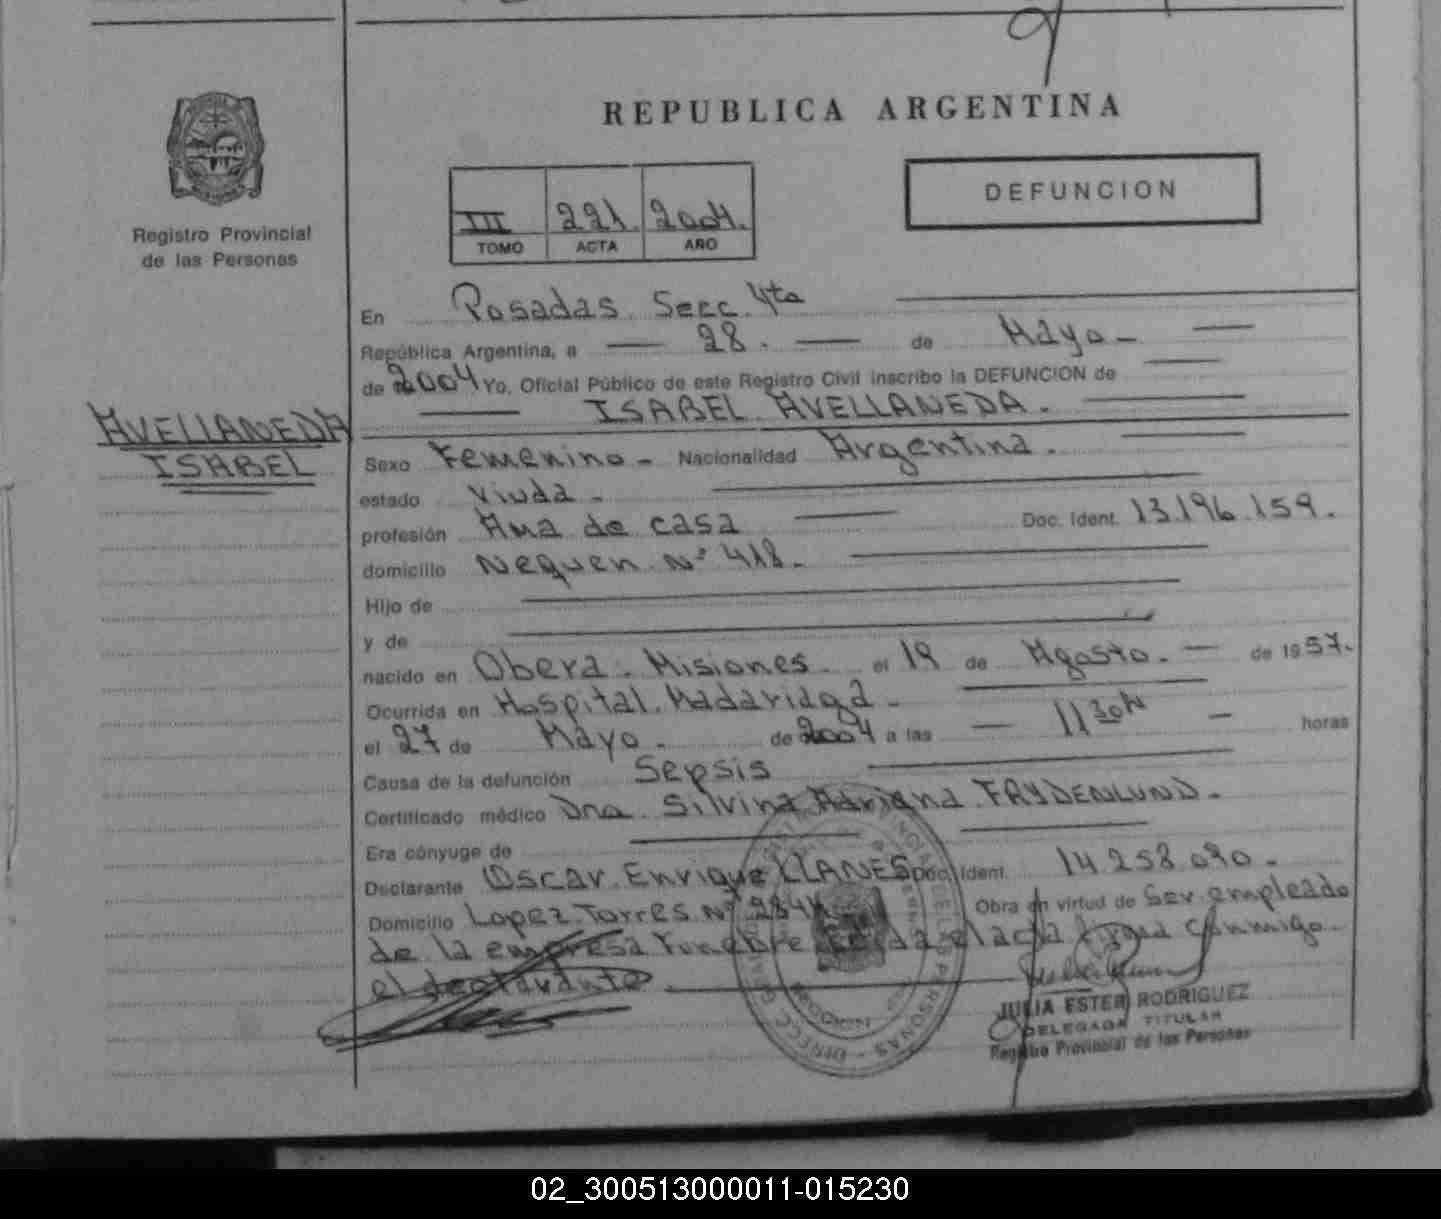 REPUBLICA ARGENTINA
DEFUNCION
III 221. 2004.
TOMO ACTA AÑO
Registro Provincial
de las Personas
AVELLANEDA
ISABEL
En Posadas Secc. 4ta
República Argentina, a 28. de Mayo
de 2004 Yo, Oficial Público de este Registro Civil inscribo la DEFUNCION de
ISABEL AVELLANEDA.
Sexo Femenino - Nacionalidad Argentina.
estado Viuda -
profesión Ama de casa Doc. Ident. 13.196.159.
domicilio Nequen Nº 418.
Hijo de
y de
nacido en Obera. Misiones el 19 de Agosto. de 1957.
Ocurrida en Hospital. Madariaga -
el 27 de Mayo. de 2004 a las 11 30 h horas
Causa de la defunción Sepsis
Certificado médico Dra. Silvina Adriana FRYDENLUND.
Era cónyuge de
Declarante Oscar Enrique LLANES Doc. Ident. 14.258.090.
Domicilio Lopez Torres Nº 284 Obra en virtud de Ser empleado
de la empresa Funebre acta firma Conmigo
el declarante
JULIA ESTER RODRIGUEZ
DELEGADA TITULAR
Registro Provincial de las Personas
02_300513000011-015230